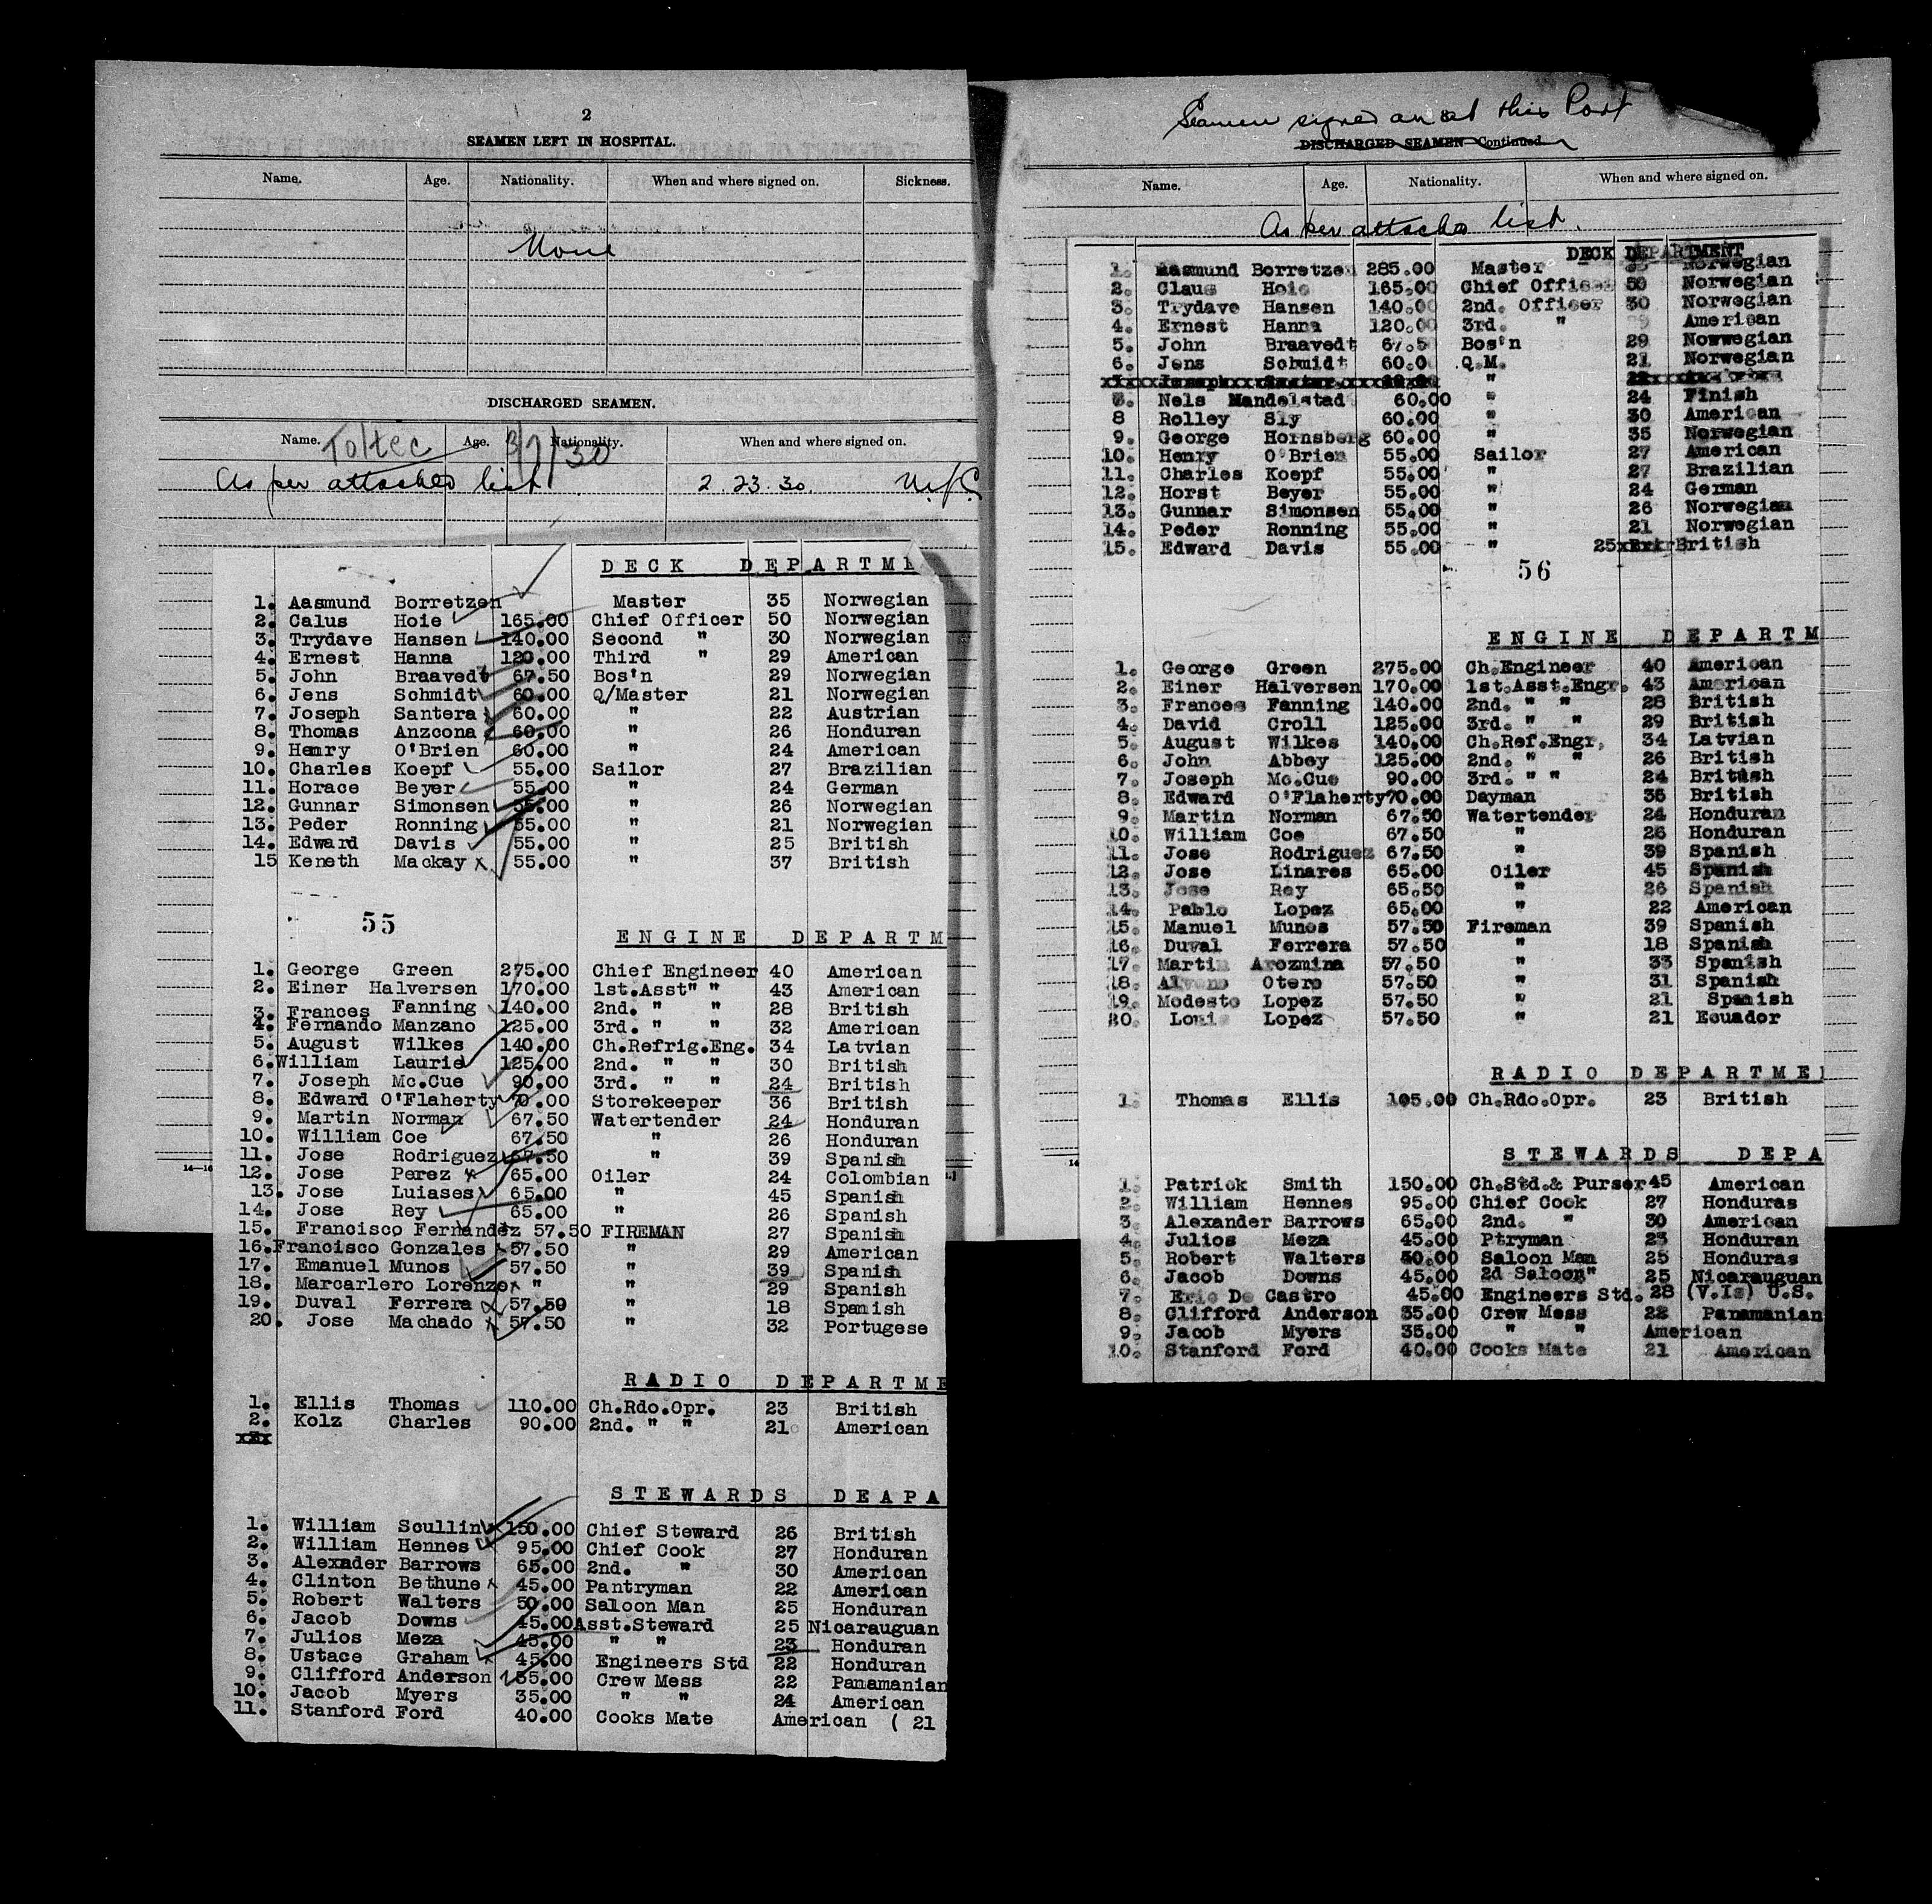 2
SEAMEN LEFT IN HOSPITAL.
Name. Age. Nationality. When and where signed on. Sickness.
None
DISCHARGED SEAMEN.
Name. Age. Nationality. When and where signed on.
Toltec 3/7/30
As per attached list 2.23.30.
DECK DEPARTME
1. Aasmund Borretzen Master 35 Norwegian
2. Calus Hoie 165.00 Chief Officer 50 Norwegian
3. Trydave Hansen 140.00 Second " 30 Norwegian
4. Ernest Hanna 120.00 Third " 29 American
5. John Braavedt 67.50 Bos'n 29 Norwegian
6. Jens Schmidt 60.00 Q/Master 21 Norwegian
7. Joseph Santera 60.00 " 22 Austrian
8. Thomas Anzcona 60.00 " 26 Honduran
9. Henry O'Brien 60.00 " 24 American
10. Charles Koepf 55.00 Sailor 27 Brazilian
11. Horace Beyer 55.00 " 24 German
12. Gunnar Simonsen 55.00 " 26 Norwegian
13. Peder Ronning 55.00 " 21 Norwegian
14. Edward Davis 55.00 " 25 British
15 Keneth Mackay x 55.00 " 37 British
55
ENGINE DEPARTM
1. George Green 275.00 Chief Engineer 40 American
2. Einer Halversen 170.00 1st.Asst" " 43 American
3. Frances Fanning 140.00 2nd. " " 28 British
4. Fernando Manzano 125.00 3rd. " " 32 American
5. August Wilkes 140.00 Ch.Refrig.Eng. 34 Latvian
6. William Laurie 125.00 2nd. " " 30 British
7. Joseph Mc.Cue 90.00 3rd. " " 24 British
8. Edward O'Flaherty 70.00 Storekeeper 36 British
9. Martin Norman 67.50 Watertender 24 Honduran
10. William Coe 67.50 " 26 Honduran
11. Jose Rodriguez 67.50 " 39 Spanish
12. Jose Perez x 65.00 Oiler 24 Colombian
13. Jose Luiases 65.00 " 45 Spanish
14. Jose Rey 65.00 " 26 Spanish
15. Francisco Fernandez 57.50 FIREMAN 27 Spanish
16. Francisco Gonzales x 57.50 " 29 American
17. Emanuel Munos 57.50 " 39 Spanish
18. Marcarlero Lorenzo x " " 29 Spanish
19. Duval Ferrera 57.50 " 18 Spanish
20. Jose Machado x 57.50 " 32 Portugese
RADIO DEPARTME
1. Ellis Thomas 110.00 Ch.Rdo.Opr. 23 British
2. Kolz Charles 90.00 2nd. " " 21 American
STEWARDS DEAPA
1. William Scullin x 150.00 Chief Steward 26 British
2. William Hennes 95.00 Chief Cook 27 Honduran
3. Alexader Barrows 65.00 2nd. " 30 American
4. Clinton Bethune x 45.00 Pantryman 22 American
5. Robert Walters 50.00 Saloon Man 25 Honduran
6. Jacob Downs 45.00 Asst.Steward 25 Nicarauguan
7. Julios Meza 45.00 " " 23 Honduran
8. Ustace Graham x 45.00 Engineers Std 22 Honduran
9. Clifford Anderson 35.00 Crew Mess 22 Panamanian
10. Jacob Myers 35.00 " " 24 American
11. Stanford Ford 40.00 Cooks Mate American ( 21
Seamen signed on at this Port
DISCHARGED SEAMEN—Continued.
Name. Age. Nationality. When and where signed on.
As per attached list.
DECK DEPARTMENT
1. Aasmund Borretzen 285.00 Master Norwegian
2. Claus Hoie 165.00 Chief Officer 50 Norwegian
3. Trydave Hansen 140.00 2nd. Officer 30 Norwegian
4. Ernest Hanna 120.00 3rd. " American
5. John Braavedt 67.5 Bos'n 29 Norwegian
6. Jens Schmidt 60.0 Q.M. 21 Norwegian
"
Nels Mandelstad 60.00 " 24 Finish
8 Rolley Sly 60.00 " 30 American
9. George Hornsberg 60.00 " 35 Norwegian
10. Henry O'Brien 55.00 Sailor 27 American
11. Charles Koepf 55.00 " 27 Brazilian
12. Horst Beyer 55.00 " 24 German
13. Gunnar Simonsen 55.00 " 26 Norwegian
14. Peder Ronning 55.00 " 21 Norwegian
15. Edward Davis 55.00 " 25 British
56
ENGINE DEPARTM
1. George Green 275.00 Ch.Engineer 40 American
2. Einer Halversen 170.00 1st.Asst.Engr. 43 American
3. Frances Fanning 140.00 2nd. " " 28 British
4. David Croll 125.00 3rd. " " 29 British
5. August Wilkes 140.00 Ch.Ref.Engr. 34 Latvian
6. John Abbey 125.00 2nd. " " 26 British
7. Joseph Mc.Cue 90.00 3rd. " " 24 British
8. Edward O'Flaherty 70.00 Dayman 36 British
9. Martin Norman 67.50 Watertender 24 Honduran
10. William Coe 67.50 " 26 Honduran
11. Jose Rodriguez 67.50 " 39 Spanish
12. Jose Linares 65.00 Oiler 45 Spanish
13. Jose Rey 65.50 " 26 Spanish
14. Pablo Lopez 65.00 " 22 American
15. Manuel Munos 57.50 Fireman 39 Spanish
16. Duval Ferrera 57.50 " 18 Spanish
17. Martin Arozmina 57.50 " 33 Spanish
18. Otero 57.50 " 31 Spanish
19. Modesto Lopez 57.50 " 21 Spanish
20. Louis Lopez 57.50 " 21 Ecuador
RADIO DEPARTME
1. Thomas Ellis 105.00 Ch.Rdo.Opr. 23 British
STEWARDS DEPA
1. Patrick Smith 150.00 Ch.Std.& Purser 45 American
2. William Hennes 95.00 Chief Cook 27 Honduras
3. Alexander Barrows 65.00 2nd. " 30 American
4. Julios Meza 45.00 Ptryman 23 Honduran
5. Robert Walters 50.00 Saloon Man 25 Honduras
6. Jacob Downs 45.00 2d Saloon" 25 Nicarauguan
7. Eric De Castro 45.00 Engineers Std. 28 (V.Is) U.S.
8. Clifford Anderson 35.00 Crew Mess 22 Panamanian
9. Jacob Myers 35.00 " " American
10. Stanford Ford 40.00 Cooks Mate 21 American